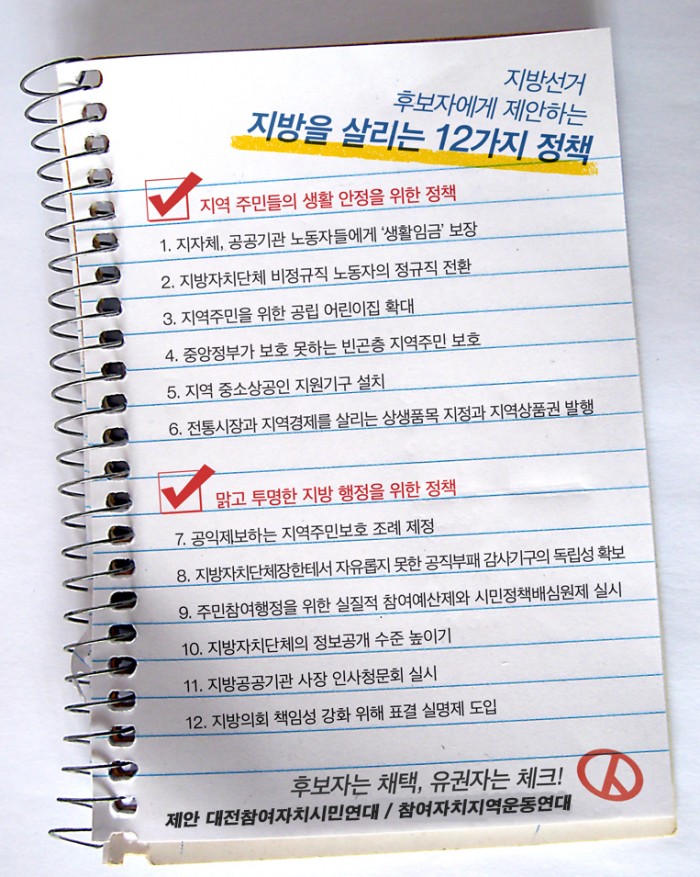 지방선거
후보자에게 제안하는
지방을 살리는 12가지 정책
지역 주민들의 생활 안정을 위한 정책
1. 지자체, 공공기관 노동자들에게 '생활임금' 보장
2. 지방자치단체 비정규직 노동자의 정규직 전환
3. 지역주민을 위한 공립 어린이집 확대
4. 중앙정부가 보호 못하는 빈곤층 지역주민 보호
5. 지역 중소상공인 지원기구 설치
6. 전통시장과 지역경제를 살리는 상생품목 지정과 지역상품권 발행
맑고 투명한 지방 행정을 위한 정책
7. 공익제보하는 지역주민보호 조례 제정
8. 지방자치단체장한테서 자유롭지 못한 공직부패 감사기구의 독립성 확보
9. 주민참여행정을 위한 실질적 참여예산제와 시민정책배심원제 실시
10. 지방자치단체의 정보공개 수준 높이기
11. 지방공공기관 사장 인사청문회 실시
12. 지방의회 책임성 강화 위해 표결 실명제 도입
후보자는 채택, 유권자는 체크!
제안 대전참여자치시민연대 / 참여자치지역운동연대